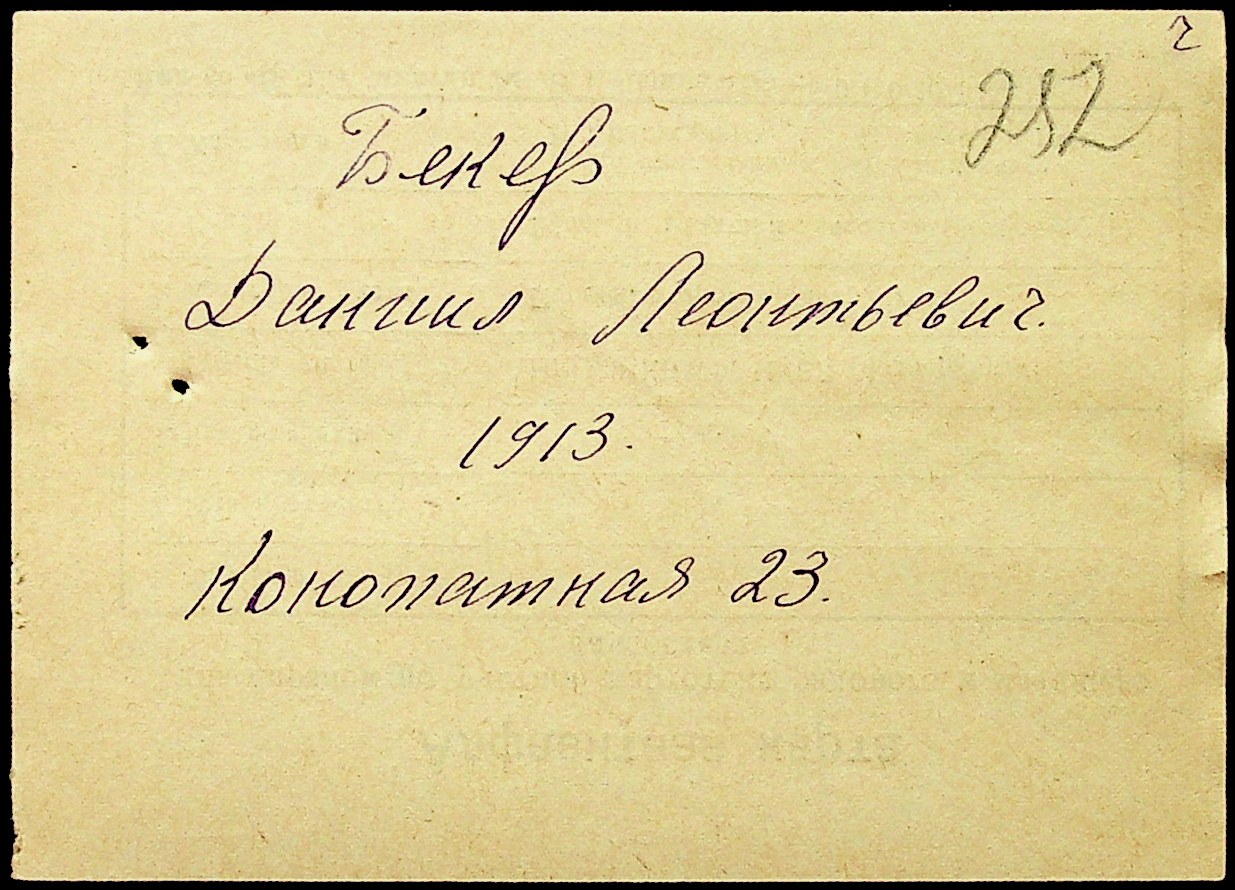 252
Бекер
Даниил Леонтьевич.
1913.
Конопатная 23.